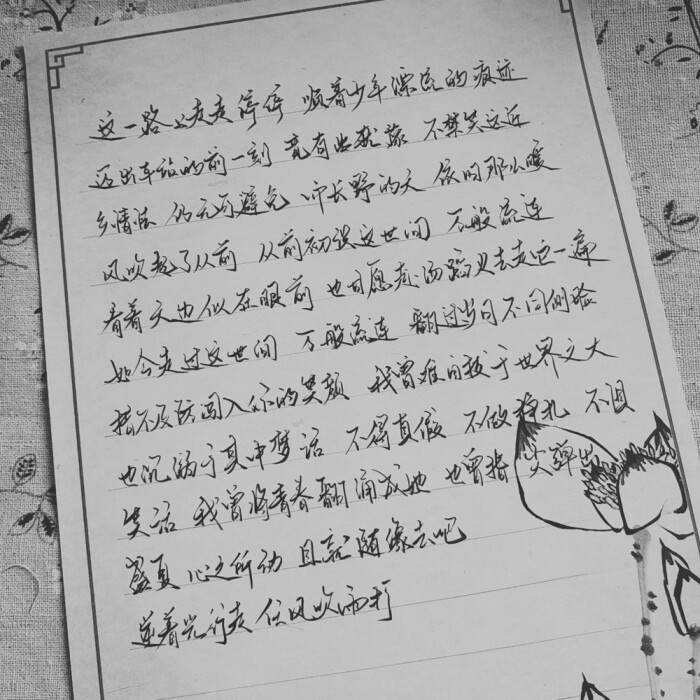 这一路上走走停停 顺着少年漂流的痕迹
迈出车站的前一刻 竟有些犹豫 不禁笑这近
乡情怯 仍无可避免 而长野的天 依旧那么暖
风吹起了从前 从前初识这世间 万般流连
看着天边似在眼前 也甘愿赴汤蹈火去走它一遍
如今走过这世间 万般流连 翻过岁月不同侧脸
措不及防闯入你的笑颜 我曾难自拔于世界之大
也沉溺于其中梦话 不得真假 不做挣扎 不惧
笑话 我曾将青春翻涌成她 也曾指尖弹出
盛夏 心之所动 且就随缘去吧
逆着光行走 任风吹雨打